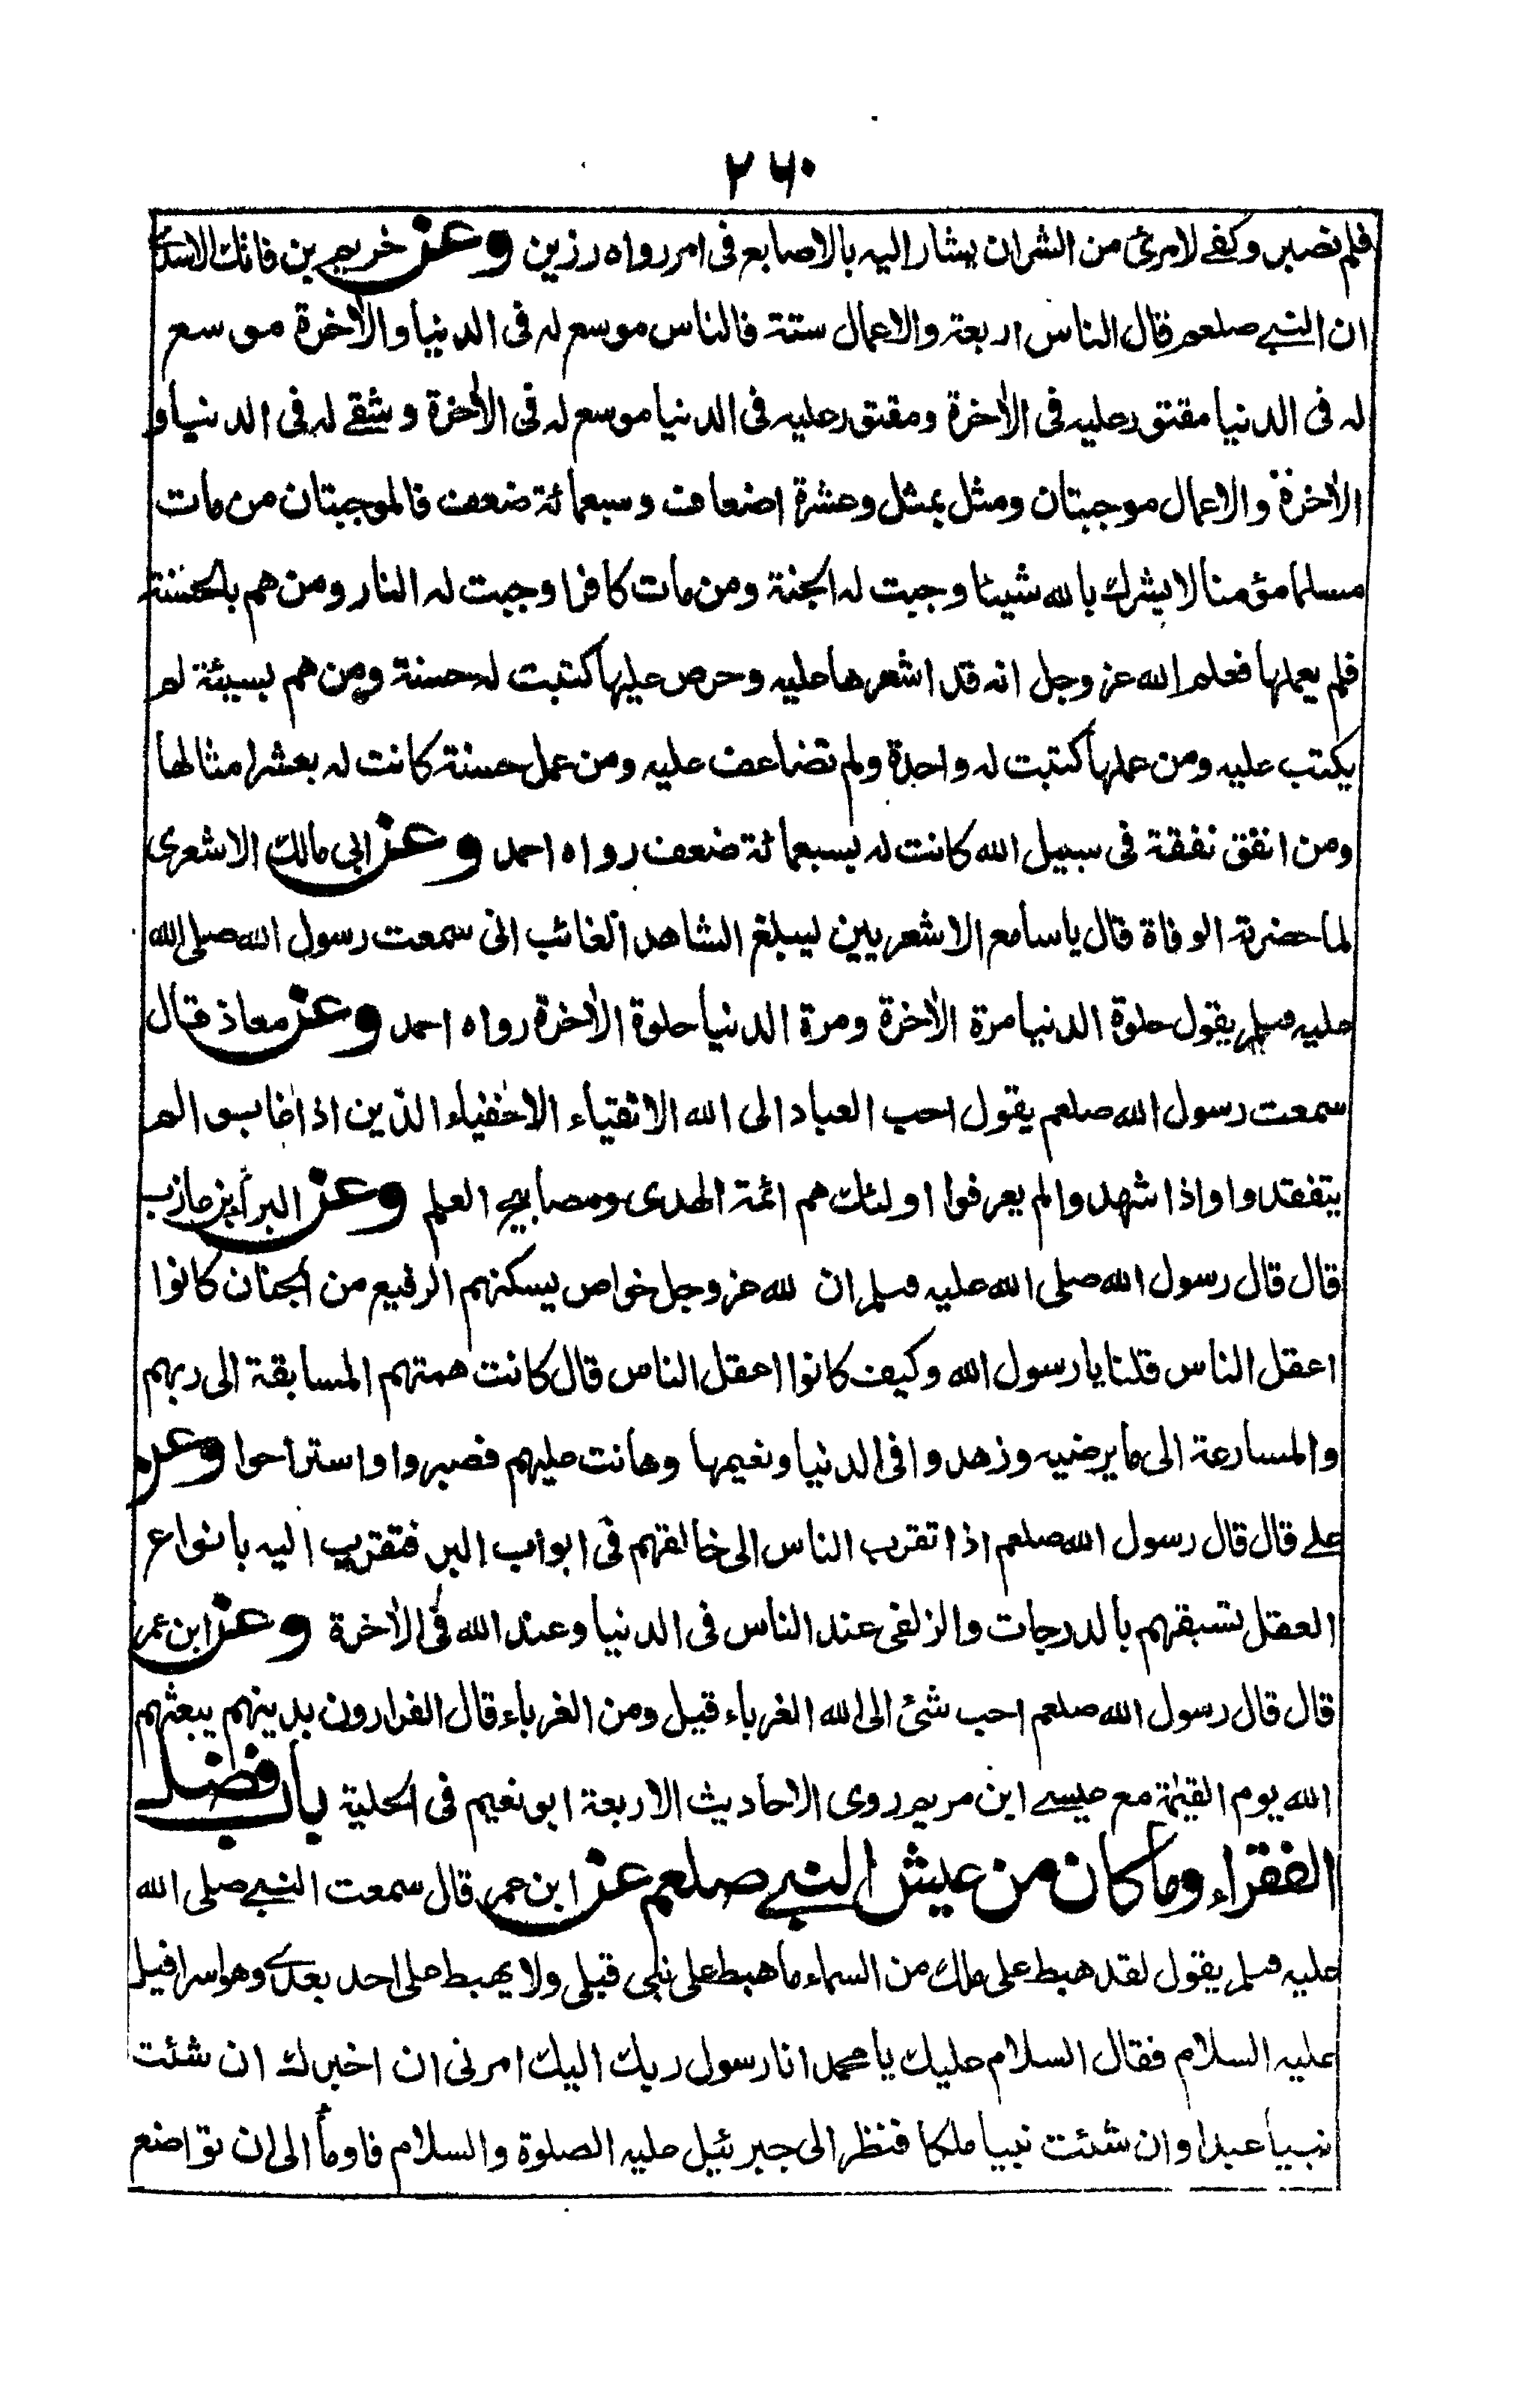 ٢٦٠
فلم نصبر وكفے لامرئ من الشر ان يشار اليه بالاصابع فى امر رواه رزين وعن خريم بن فاتك الاسدى
ان النبے صلعم قال الناس اربعة والاعمال ستة فالناس موسع له فى الدنيا والاٰخرة موسع
له فى الدنيا مقتور عليه فى الاٰخرة ومقتور عليه فى الدنيا موسع له فى الاٰخرة وشقے له فى الدنيا و
الاٰخرة والاعمال موجبتان ومثل بمثل وعشرة اضعاف وسبعمائة ضعف فالموجبتان من مات
مسلما مؤمنا لا يشرك بالله شيئا وجبت له الجنة ومن مات كافرا وجبت له النار ومن هم بالحسنة
فلم يعملها فعلم الله عز وجل انه قد اشعرها عليه وحرص عليها كتبت له حسنة ومن هم بسيئة لم
يكتب عليه ومن عملها كتبت له واحدة ولم تضاعف عليه ومن عمل حسنة كانت له بعشر امثالها
ومن انفق نفقة فى سبيل الله كانت له بسبعمائة ضعف رواه احمد وعن ابى مالك الاشعرى
لما حضرته الوفاة قال يا سامع الاشعريين ليبلغ الشاهد الغائب انى سمعت رسول الله صلى الله
عليه وسلم يقول حلوة الدنيا مرة الاٰخرة ومرة الدنيا حلوة الاٰخرة رواه احمد وعن معاذ قال
سمعت رسول الله صلعم يقول احب العباد الى الله الاتقياء الاخفياء الذين اذا غابوا لم
يتفقدوا واذا شهدوا لم يعرفوا اولئك هم ائمة الهدى ومصابيح العلم وعن البراء بن عازب
قال قال رسول الله صلى الله عليه وسلم ان لله عز وجل خواص يسكنهم الرفيع من الجنان كانوا
اعقل الناس قلنا يا رسول الله وكيف كانوا اعقل الناس قال كانت همتهم المسابقة الى ربهم
والمسارعة الى ما يرضيه وزهدوا فى الدنيا ونعيمها وهانت عليهم فصبروا واستراحوا وعن
علے قال قال رسول الله صلعم اذا تقرب الناس الى خالقهم فى ابواب البر فتقرب اليه بانواع
العقل تسبقهم بالدرجات والزلفى عند الناس فى الدنيا وعند الله فى الاٰخرة وعن ابن عمر
قال قال رسول الله صلعم احب شئ الى الله الغرباء قيل ومن الغرباء قال الفرارون بدينهم يبعثهم
الله يوم القيٰمة مع عيسے ابن مريم روى الاحاديث الاربعة ابو نعيم فى الحلية باب فضل
الفقراء وما كان من عيش النبے صلعم عن ابن عمر قال سمعت النبے صلى الله
عليه وسلم يقول لقد هبط على ملك من السماء ما هبط على نبى قبلى ولا يهبط على احد بعدى وهو اسرافيل
عليه السلام فقال السلام عليك يا محمد انا رسول ربك اليك امرنى ان اخبرك ان شئت
نبيا عبدا وان شئت نبيا ملكا فنظر الى جبرئيل عليه الصلوة والسلام فاومأ الى ان تواضع